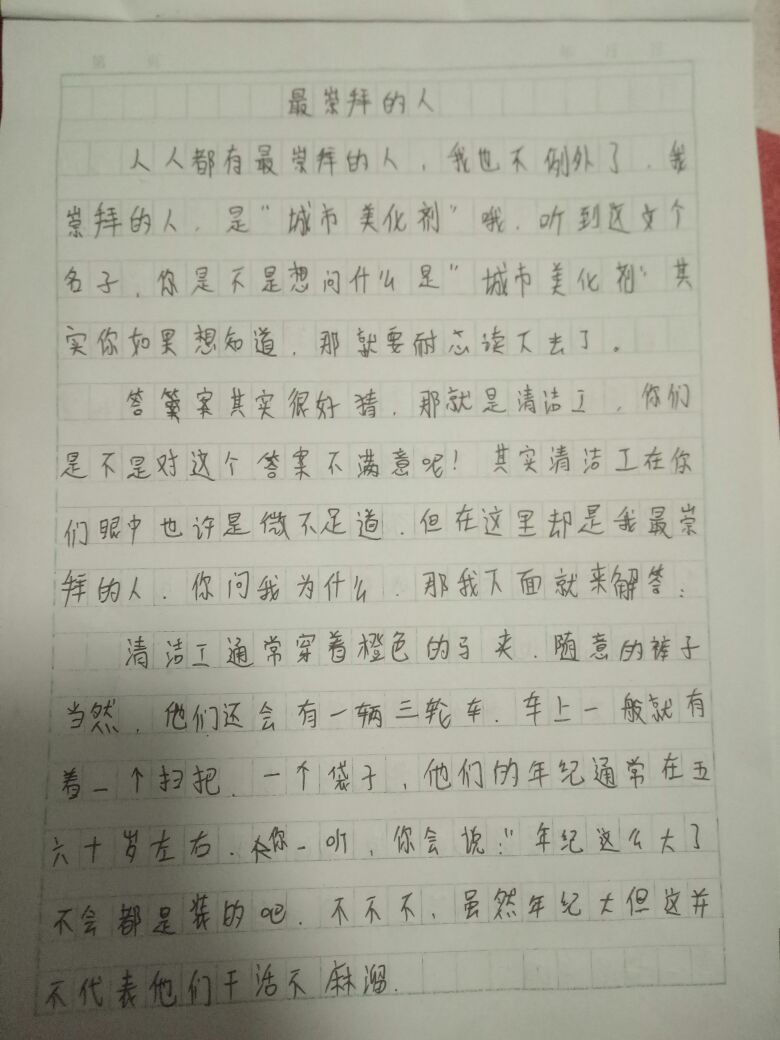 第 页 年 月 日
最崇拜的人
人人都有最崇拜的人，我也不例外了．我
崇拜的人．是"城市美化剂"哦．听到这文个
名子．你是不是想问什么是"城市美化剂"其
实你如果想知道．那就要耐心读下去了。
答案其实很好猜．那就是清洁工．你们
是不是对这个答案不满意呢！其实清洁工在你
们眼中也许是微不足道．但在这里却是我最崇
拜的人．你问我为什么．那我下面就来解答：
清洁工通常穿着橙色的马夹．随意的裤子
当然．他们还会有一辆三轮车．车上一般就有
着一个扫把．一个袋子，他们的年纪通常在五
六十岁左右．你一听，你会说："年纪这么大了
不会都是装的吧．不不不、虽然年纪大但这并
不代表他们干活不麻溜．